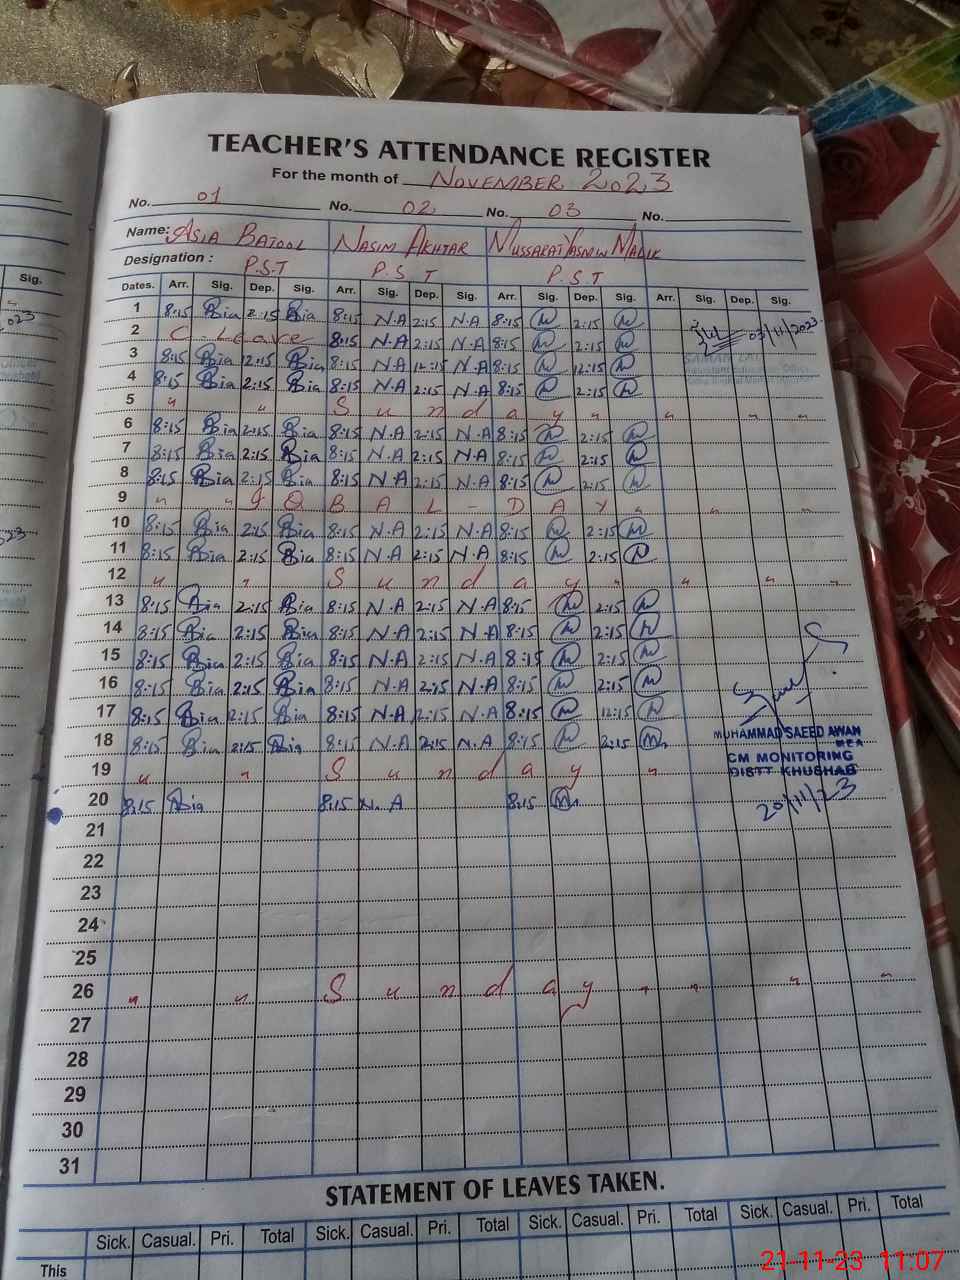 TEACHER'S ATTENDANCE REGISTER
For the month of NOVEMBER 2023
No. 01 No. 02 No. 03 No.
Name: ASIA BATOOL NASIM AKHTAR MUSSARAT YASMIN MALIK
Designation : P.S.T P.S.T P.S.T
Dates. Arr. Sig. Dep. Sig. Arr. Sig. Dep. Sig. Arr. Sig. Dep. Sig. Arr. Sig. Dep. Sig.
1 8:15 Asia 2:15 Asia 8:15 N.A 2:15 N.A 8:15 M 2:15 M 03/11/2023
2 C Leave 8:15 N.A 2:15 N.A 8:15 M 2:15 M
3 8:15 Asia 12:15 Asia 8:15 N.A 12:15 N.A 8:15 M 12:15 M
4 8:15 Asia 2:15 Asia 8:15 N.A 2:15 N.A 8:15 M 2:15 M
5 " " Sunday " " " "
6 8:15 Asia 2:15 Asia 8:15 N.A 2:15 N.A 8:15 M 2:15 M
7 8:15 Asia 2:15 Asia 8:15 N.A 2:15 N.A 8:15 M 2:15 M
8 8:15 Asia 2:15 Asia 8:15 N.A 2:15 N.A 8:15 M 2:15 M
9 " " IQBAL - DAY " " "
10 8:15 Asia 2:15 Asia 8:15 N.A 2:15 N.A 8:15 M 2:15 M
11 8:15 Asia 2:15 Asia 8:15 N.A 2:15 N.A 8:15 M 2:15 M
12 " " Sunday " " " "
13 8:15 Asia 2:15 Asia 8:15 N.A 2:15 N.A 8:15 M 2:15 M
14 8:15 Asia 2:15 Asia 8:15 N.A 2:15 N.A 8:15 M 2:15 M
15 8:15 Asia 2:15 Asia 8:15 N.A 2:15 N.A 8:15 M 2:15 M
16 8:15 Asia 2:15 Asia 8:15 N.A 2:15 N.A 8:15 M 2:15 M
17 8:15 Asia 12:15 Asia 8:15 N.A 12:15 N.A 8:15 M 12:15 M
18 8:15 Asia 2:15 Asia 8:15 N.A 2:15 N.A 8:15 M 2:15 M
MUHAMMAD SAEED AWAN
MEA
CM MONITORING
DISTT KHUSHAB
20/11/23
19 " " Sunday "
20 8:15 Asia 8:15 N.A 8:15 M
21
22
23
24
25
26 " " Sunday " " " "
27
28
29
30
31
STATEMENT OF LEAVES TAKEN.
Sick. Casual. Pri. Total Sick. Casual. Pri. Total Sick. Casual. Pri. Total Sick. Casual. Pri. Total
This
Sig.
21-11-23 11:07